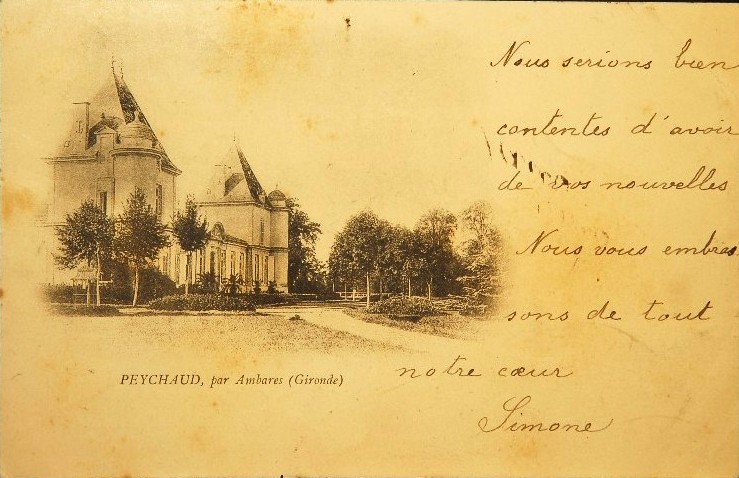 Nous serions bien
contentes d'avoir
de vos nouvelles
Nous vous embras
sons de tout
notre cœur
Simone
PEYCHAUD, par Ambares (Gironde)